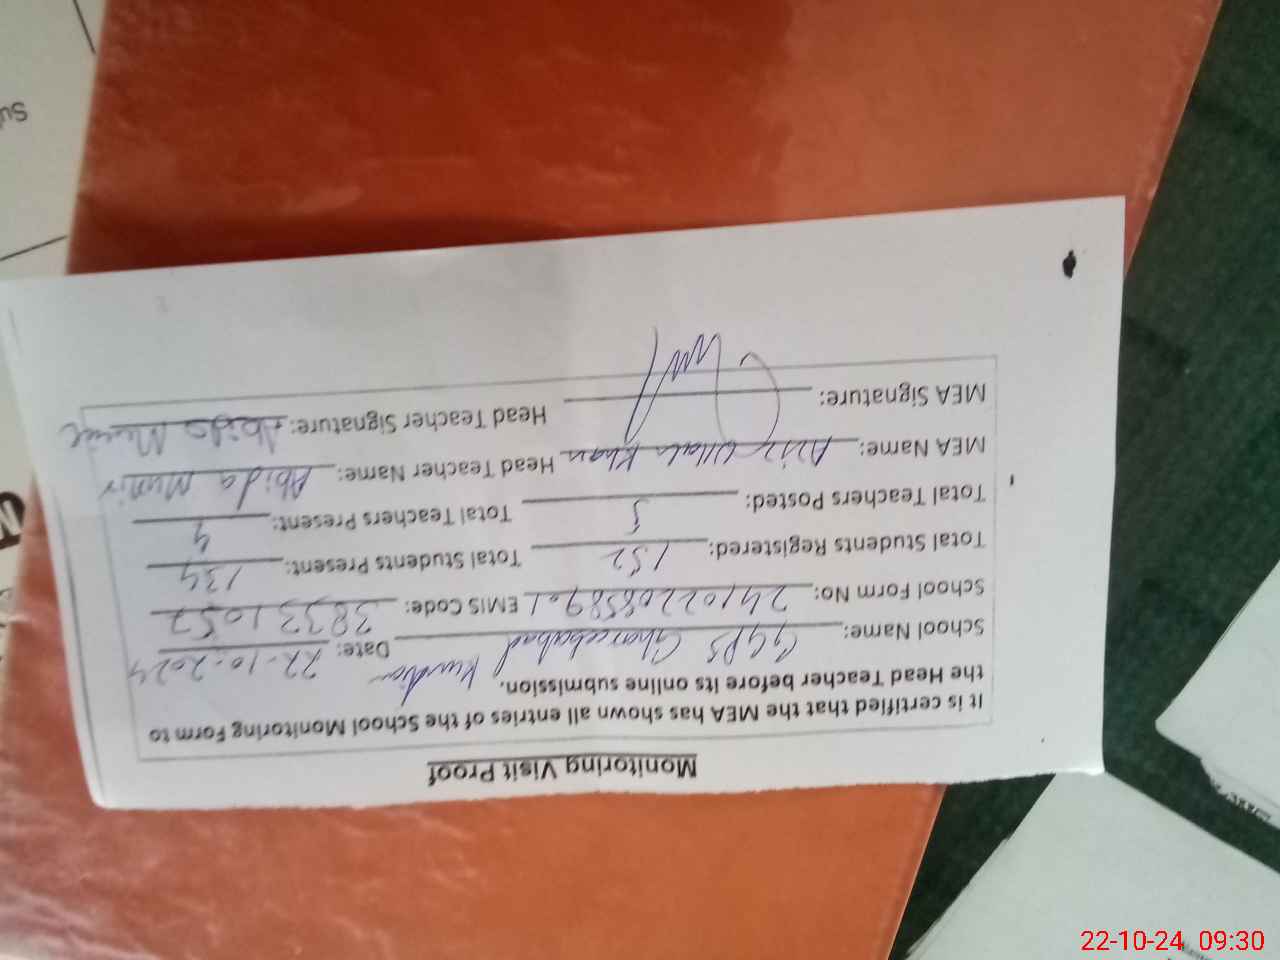 Monitoring Visit Proof
It is certified that the MEA has shown all entries of the School Monitoring Form to
the Head Teacher before its online submission.
School Name: GGPS Ghareebabad Kundian Date: 22-10-2024
School Form No: 2410220858901 EMIS Code: 38331057
Total Students Registered: 152 Total Students Present: 134
Total Teachers Posted: 5 Total Teachers Present: 4
MEA Name: Aziz Ullah Khan Head Teacher Name: Abida Munir
MEA Signature: Head Teacher Signature: Abida Munir
22-10-24 09:30